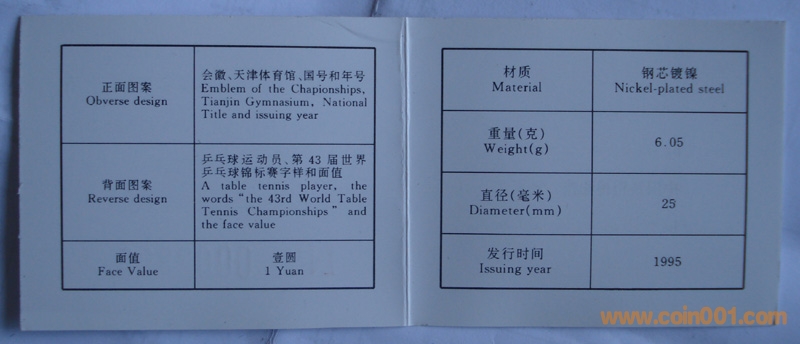 正面图案
Obverse design
会徽、天津体育馆、国号和年号
Emblem of the Chapionships,
Tianjin Gymnasium, National
Title and issuing year
背面图案
Reverse design
乒乓球运动员、第43届世界
乒乓球锦标赛字样和面值
A table tennis player, the
words“the 43rd World Table
Tennis Championships” and
the face value
面值
Face Value
壹圆
1 Yuan
材质
Material
钢芯镀镍
Nickel-plated steel
重量(克)
Weight(g)
6.05
直径(毫米)
Diameter(mm)
25
发行时间
Issuing year
1995
www.coin001.com